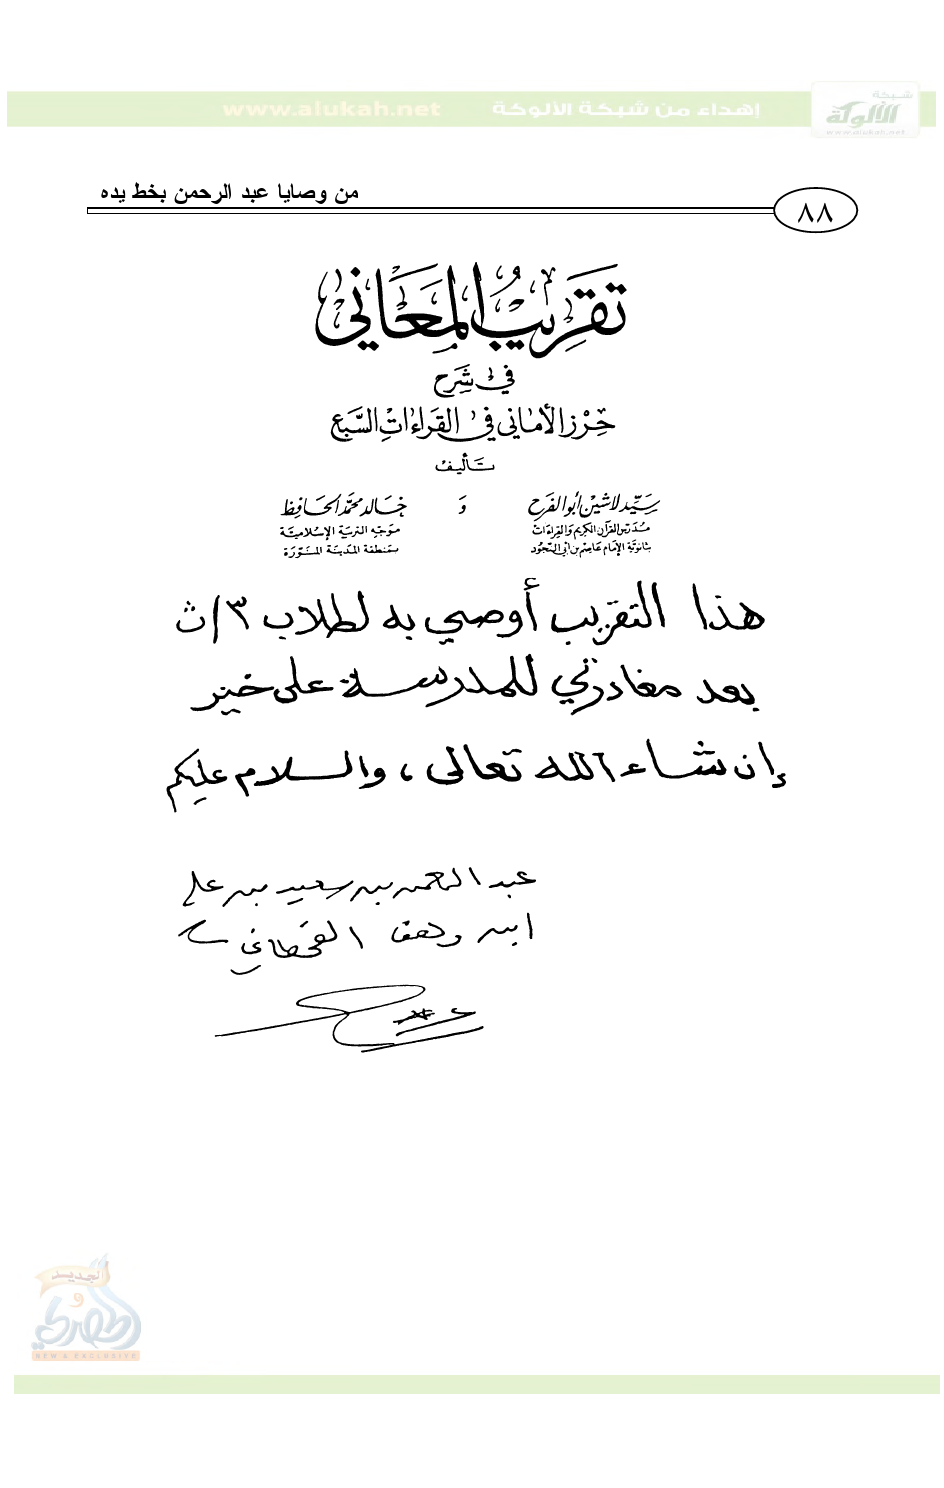 شبكة
الألوكة
www.alukah.net
إهداء من شبكة الألوكة www.alukah.net
٨٨ من وصايا عبد الرحمن بخط يده
تَقْرِيبُ المَعَانِي
في شَرح
حِرْزِ الأَمَانِي في القَرَاءَاتِ السَّبع
تَأليف
سَيِّد لاشين أبو الفَرَح وَ خَالد محمَّد الحَافِظ
مُدَرّس القرآن الكريم وَالقِراءَات موَجّه التربيَة الإسْلاميَّة
بثانويَّة الإمَام عَاصِم بن أبي النّجُود بمَنطقة المَدينَة المنَوّرَة
هذا التقريب أوصي به لطلاب ٣/ث
بعد مغادرتي للمدرسة على خير
إن شاء الله تعالى ، والسلام عليكم
عبد الرحمن بن سعيد بن علي
ابن وهف القحطاني
الجديد
و
الحصري
NEW & EXCLUSIVE